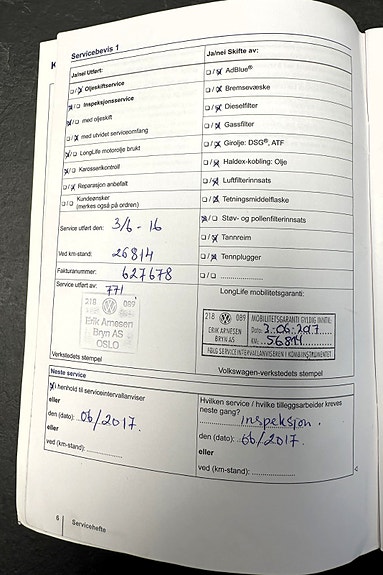 Servicebevis 1
Ja/nei Utført:
Oljeskiftservice
Inspeksjonsservice
med oljeskift
med utvidet serviceomfang
LongLife motorolje brukt
Karosserikontroll
Reparasjon anbefalt
Kundeønsker
(merkes også på ordren)
Service utført den: 3/6-16
Ved km-stand: 26814
Fakturanummer: 627678
Service utført av: 771
218 089
Erik Arnesen
Bryn AS
OSLO
Verkstedets stempel
Ja/nei Skifte av:
AdBlue®
Bremsevæske
Dieselfilter
Gassfilter
Girolje: DSG®, ATF
Haldex-kobling: Olje
Luftfilterinnsats
Tetningsmiddelflaske
Støv- og pollenfilterinnsats
Tannreim
Tennplugger
LongLife mobilitetsgaranti:
218 089
ERIK ARNESEN
BRYN AS
MOBILITETSGARANTI GYLDIG INNTIL:
Dato: 3.-06-2017
KM: 56814
FØLG SERVICEINTERVALLANVISEREN I KOMBIINSTRUMENTET
Volkswagen-verkstedets stempel
Neste service
I henhold til serviceintervallanviser
eller
den (dato): 06/2017.
eller
ved (km-stand):
Hvilken service / hvilke tilleggsarbeider kreves
neste gang?
inspeksjon.
den (dato): 06/2017.
eller
ved (km-stand):
6 Servicehefte